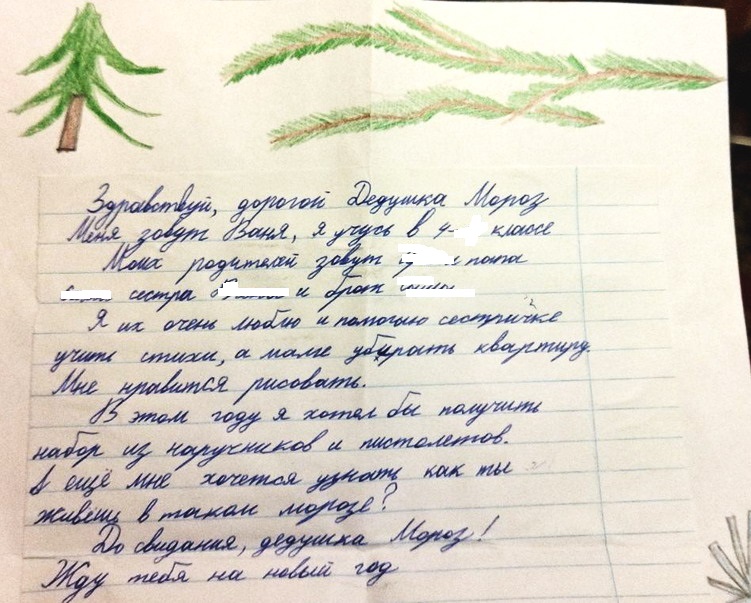 Здравствуй, дорогой Дедушка Мороз
Меня зовут Ваня, я учусь в 4- классе
Моих родителей зовут папа
сестра и брат
Я их очень люблю и помогаю сестричке
учить стихи, а маме убирать квартиру.
Мне нравится рисовать.
В этом году я хотел бы получить
набор из наручников и пистолетов.
А ещё мне хочется узнать как ты
живёшь в таком морозе?
До свидания, дедушка Мороз!
Жду тебя на новый год